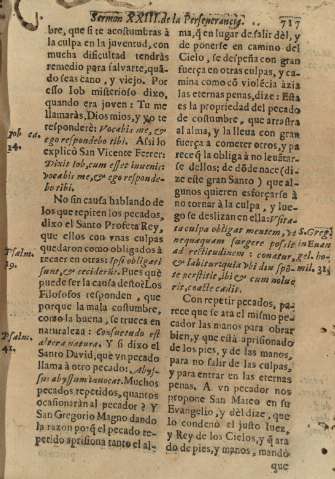 Sermon XXIII. de la Perseverancia. 717
bre, que si te acostumbras à
la culpa en la joventud, con
mucha dificultad tendràs
remedio para salvarte, quã-
do seas cano, y viejo. Por
esso Iob misterioso dixo,
quando era joven: Tu me
llamaràs, Dios mio, y yo te
responderè: Vocabis me, &
ego respondebo tibi. Assi lo
explicò San Vicente Ferrer:
Dixit Iob, cum esset iuvenis:
vocabis me, & ego responde-
bo tibi.
No sin causa hablando de
los que repiten los pecados,
dixo el Santo Profeta Rey,
que ellos con vnas culpas
quedaron como obligados à
caer en otras: Ipsi obligati
sunt, & ceciderūt. Pues què
puede ser la causa desto? Los
Filosofos responden, que
porque la mala costumbre,
como la buena, se trueca en
naturaleza: Consuetudo est
altera natura. Y si dixo el
Santo David, que vn pecado
llama à otro pecado: Abys-
sus abyssum invocat. Muchos
pecados repetidos, quantos
ocasionaràn al pecador? Y
San Gregorio Magno dando
la razon porq̃ el pecado re-
petido aprisiona tanto el al-
Iob ca.
14.
Psalm.
19.
Psalm.
41.
ma, q̃ en lugar de salir dèl, y
de ponerse en camino del
Cielo, se despeña con gran
fuerça en otras culpas, y ca-
mina como cõ violẽcia àzia
las eternas penas, dize: Esta
es la propriedad del pecado
de costumbre, que arrastra
al alma, y la lleva con gran
fuerça à cometer otros, y pa
rece q̃ la obliga à no levãtar-
se dellos; de dõde nace (di-
ze este gran Santo) que al-
gunos quieren esforçarse à
no tornar à la culpa, y lue-
go se deslizan en ella:
ta culpa obligat mentem, vt
nequaquam surgere possit
ad rectitudinem: conatur,
& labitur; quia vbi diu spõ-
te perstitit, ibi & cum nolue
rit, coacte cadit.
Con repetir pecados, pa-
rece que se ata el mismo pe-
cador las manos para obrar
bien, y que està aprisionado
de los pies, y de las manos,
para no salir de las culpas,
y para entrar en las eternas
penas. A vn pecador nos
propone San Mateo en su
Evangelio, y dèl dize, que
lo condenò el justo Iuez,
y Rey de los Cielos, y q̃ ata
do de pies, y manos, mandò
que
S. Greg.
in Euan
gel. ho-
mil. 31.